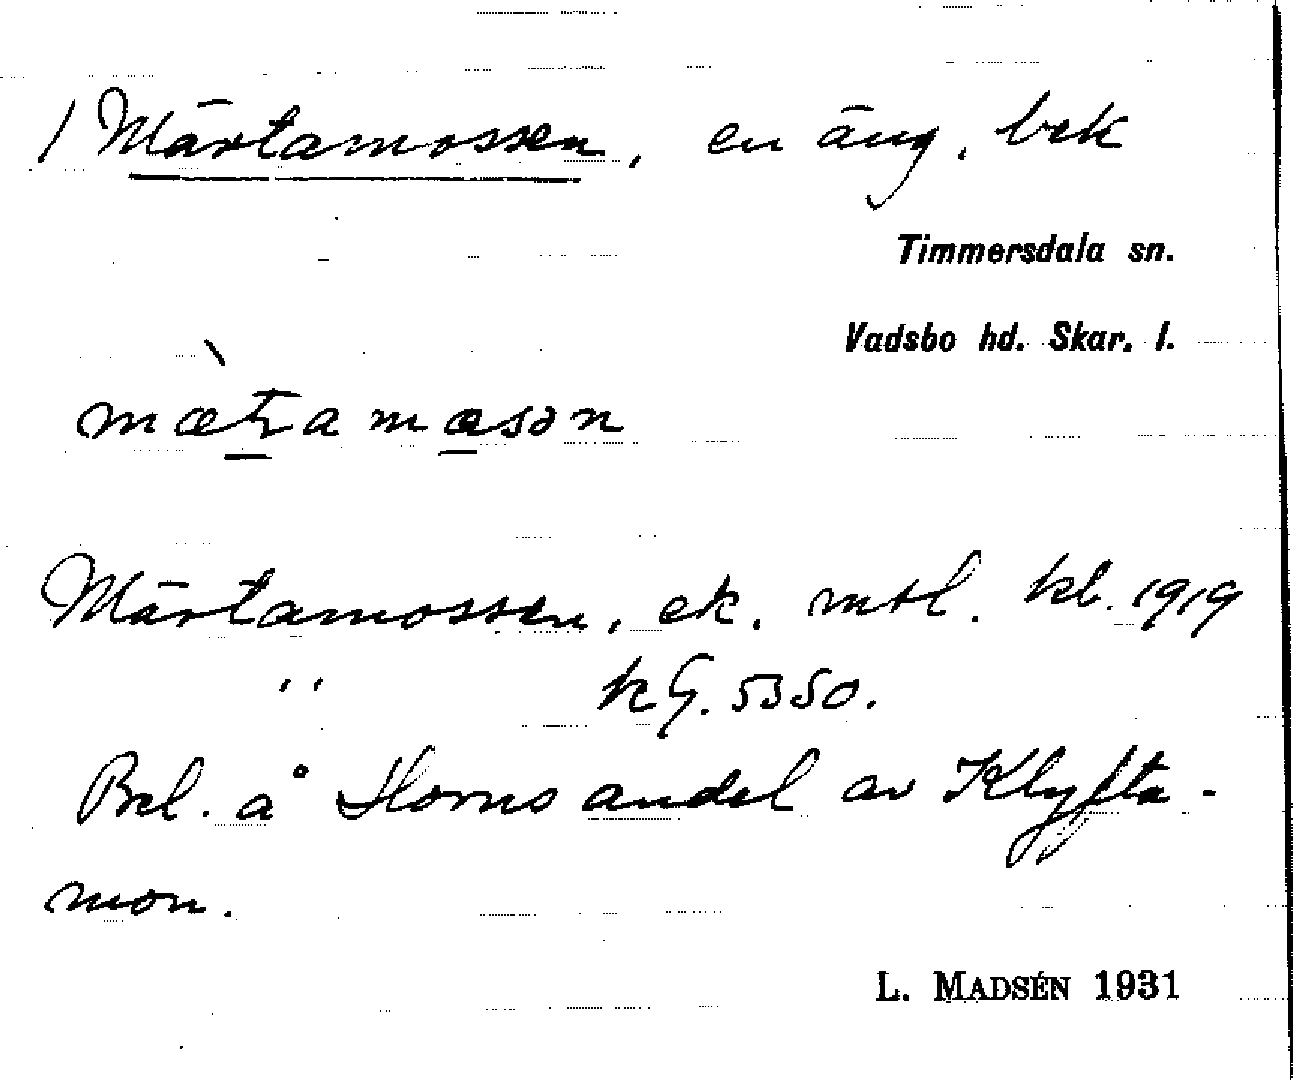 / Märtamossen, en äng, bek
Timmersdala sn.
Vadsbo hd. Skar. l.
mætamæsən
Märtamossen, ek. mtl. kb. 1919
" kG. 5350.
Bel. å Horns andel av Klyfta-
mon.
L. MADSÉN 1931